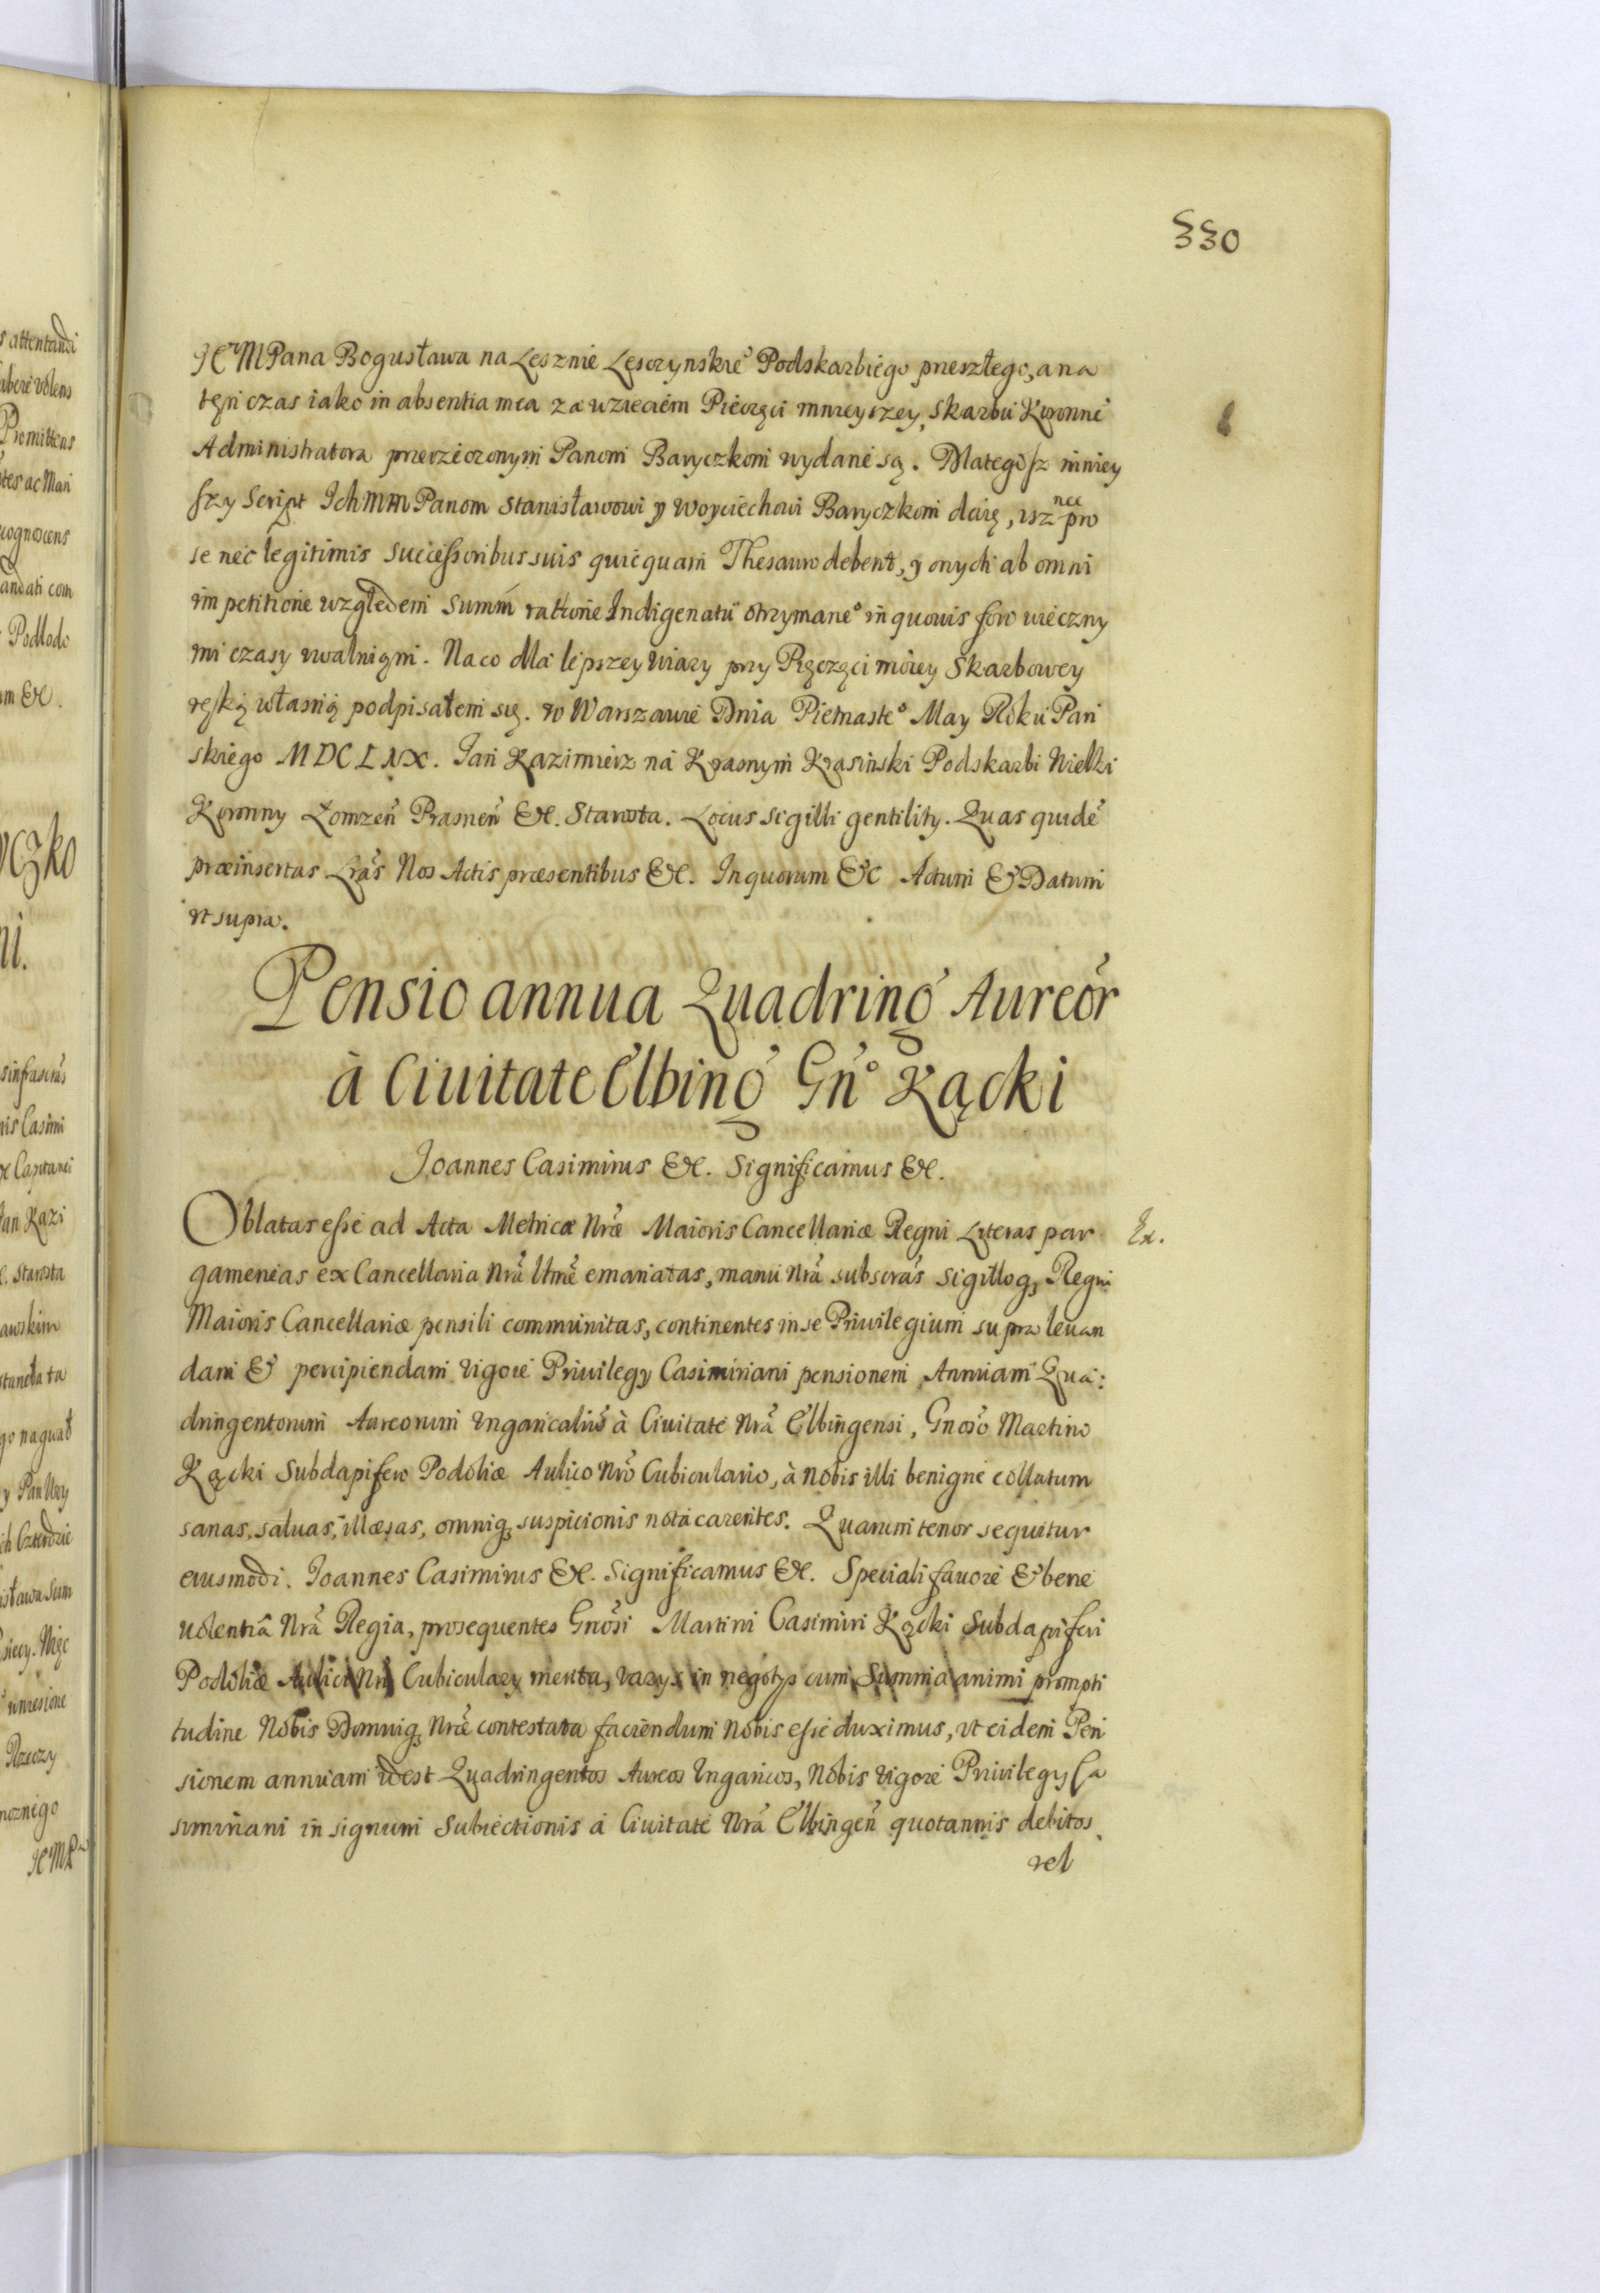 330
JEᵒ MPana Bogusława na Lesznie Lesczynskieº Podskarbiego przeszłego, a na
tęn czas iako in absentia mea za wzięciem Pieczęci mnieyszey, skarbu Koronne
Administratora przerzeczonym Panom Baryczkom wydane są. Dlategosz mniey
szy Script Ich mm Panom Stanisławowi y Woyciechowi Baryczkom daię, isz nec pro
se nec legitimis successoribus suis quicquam Thesauro debent, y onych ab omni
impetitione względem Summ ratione Indigenatu otrzymaneº in quovis foro wieczny
mi czasy uwalniąm. Na co dla lepszey wiary przy Pięczęci moiey Skarbowey
ręką własną podpisałem się. w Warszawie Dnia Pietnasteº May Roku Pan
skiego MDCLXX. Jan Kazimierz na Krasnym Krasinski Podskarbi Wielki
Koronny Łomzen̄ Prasnen̄ &c. Starosta. Locus sigilli gentility. Quas quidē
præinsertas Lrās Nos Actis præsentibus &c. In quorum &c Actum & Datum
ut supra.
Pensio annua Quadring Aureor
à Civitate Elbing Gn̄º Kącki
Joannes Casimirus &c. Significamus &c.
Oblatas esse ad Acta Metricæ Nræ Maioris Cancellariæ Regni Literas par
Ex.
gameneas ex Cancellaria Nrā Utme emanatas, manu Nrā subscrās sigilloq Regni
Maioris Cancellariæ pensili communitas, continentes in se Privilegium supra levan
dam & percipiendam vigore Privilegy Casimiriani pensionem Annuam Qua:
dringentorum Aureorum Ungaricaliū à Civitate Nrā Elbingensi, Gnoso Martino
Kącki Subdapifero Podoliæ Aulico Nrō Cubiculario, à Nobis illi benigne collatum
sanas, salvas, illæsas, omniq suspicionis nota carentes. Quarum tenor sequitur
eiusmodi. Joannes Casimirus &c. Significamus &c. Speciali favore & bene
volentiâ Nrā Regia, prosequentes Gnōsi Martini Casimiri Kącki Subdapiferi
Podoliæ Aulici Nri Cubiculary merita, varys in negotys cum Summa animi prompti
tudine Nobis Domuiq Nræ contestata faciendum Nobis esse duximus, ut eidem Pen
sionem annuam idest Quadringentos Aureos Ungaricos, Nobis vigore Privilegy Ca
simiriani in signum Subiectionis à Civitate Nrā Elbingen̄ quotannis debitos
vel